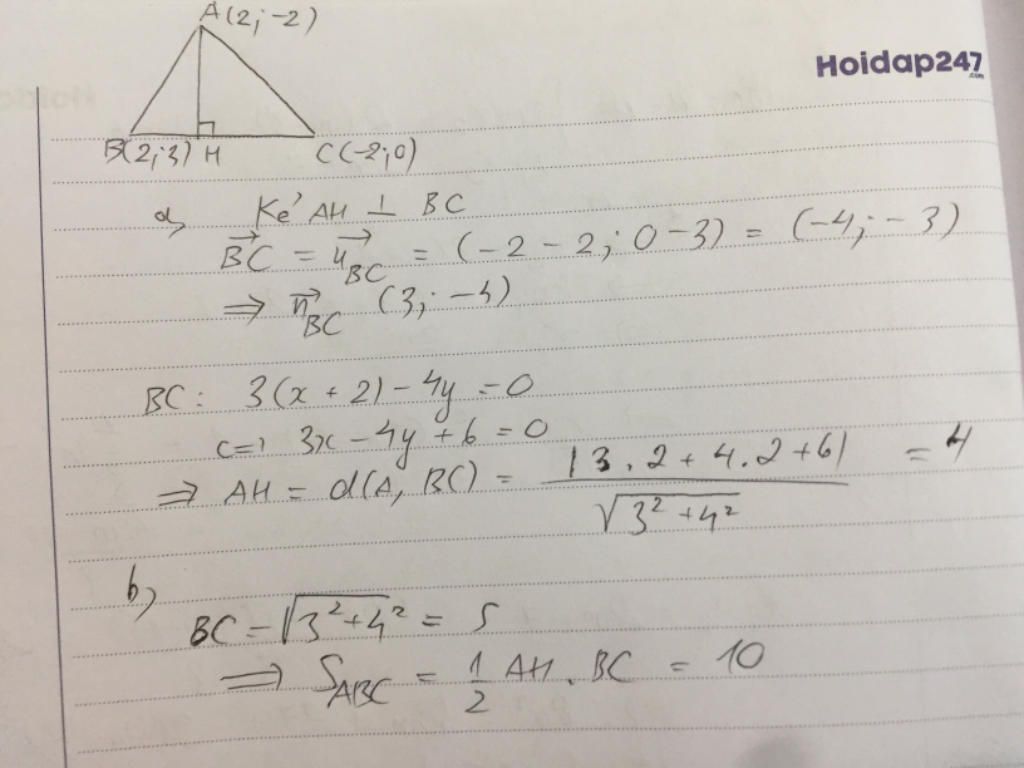 A(2;-2)
Hoidap247
.com
B(2;3) H C(-2;0)
a, Kẻ AH ⊥ BC
\vec{BC} = \vec{u}_{BC} = (-2-2; 0-3) = (-4; -3)
=> \vec{n}_{BC} (3; -4)
BC: 3(x+2)-4y=0
<=> 3x-4y+6=0
=> AH = d(A, BC) = |3.2+4.2+6| / √(3²+4²) = 4
b)
BC = √(3²+4²) = 5
=> S_{ABC} = 1/2 AH.BC = 10